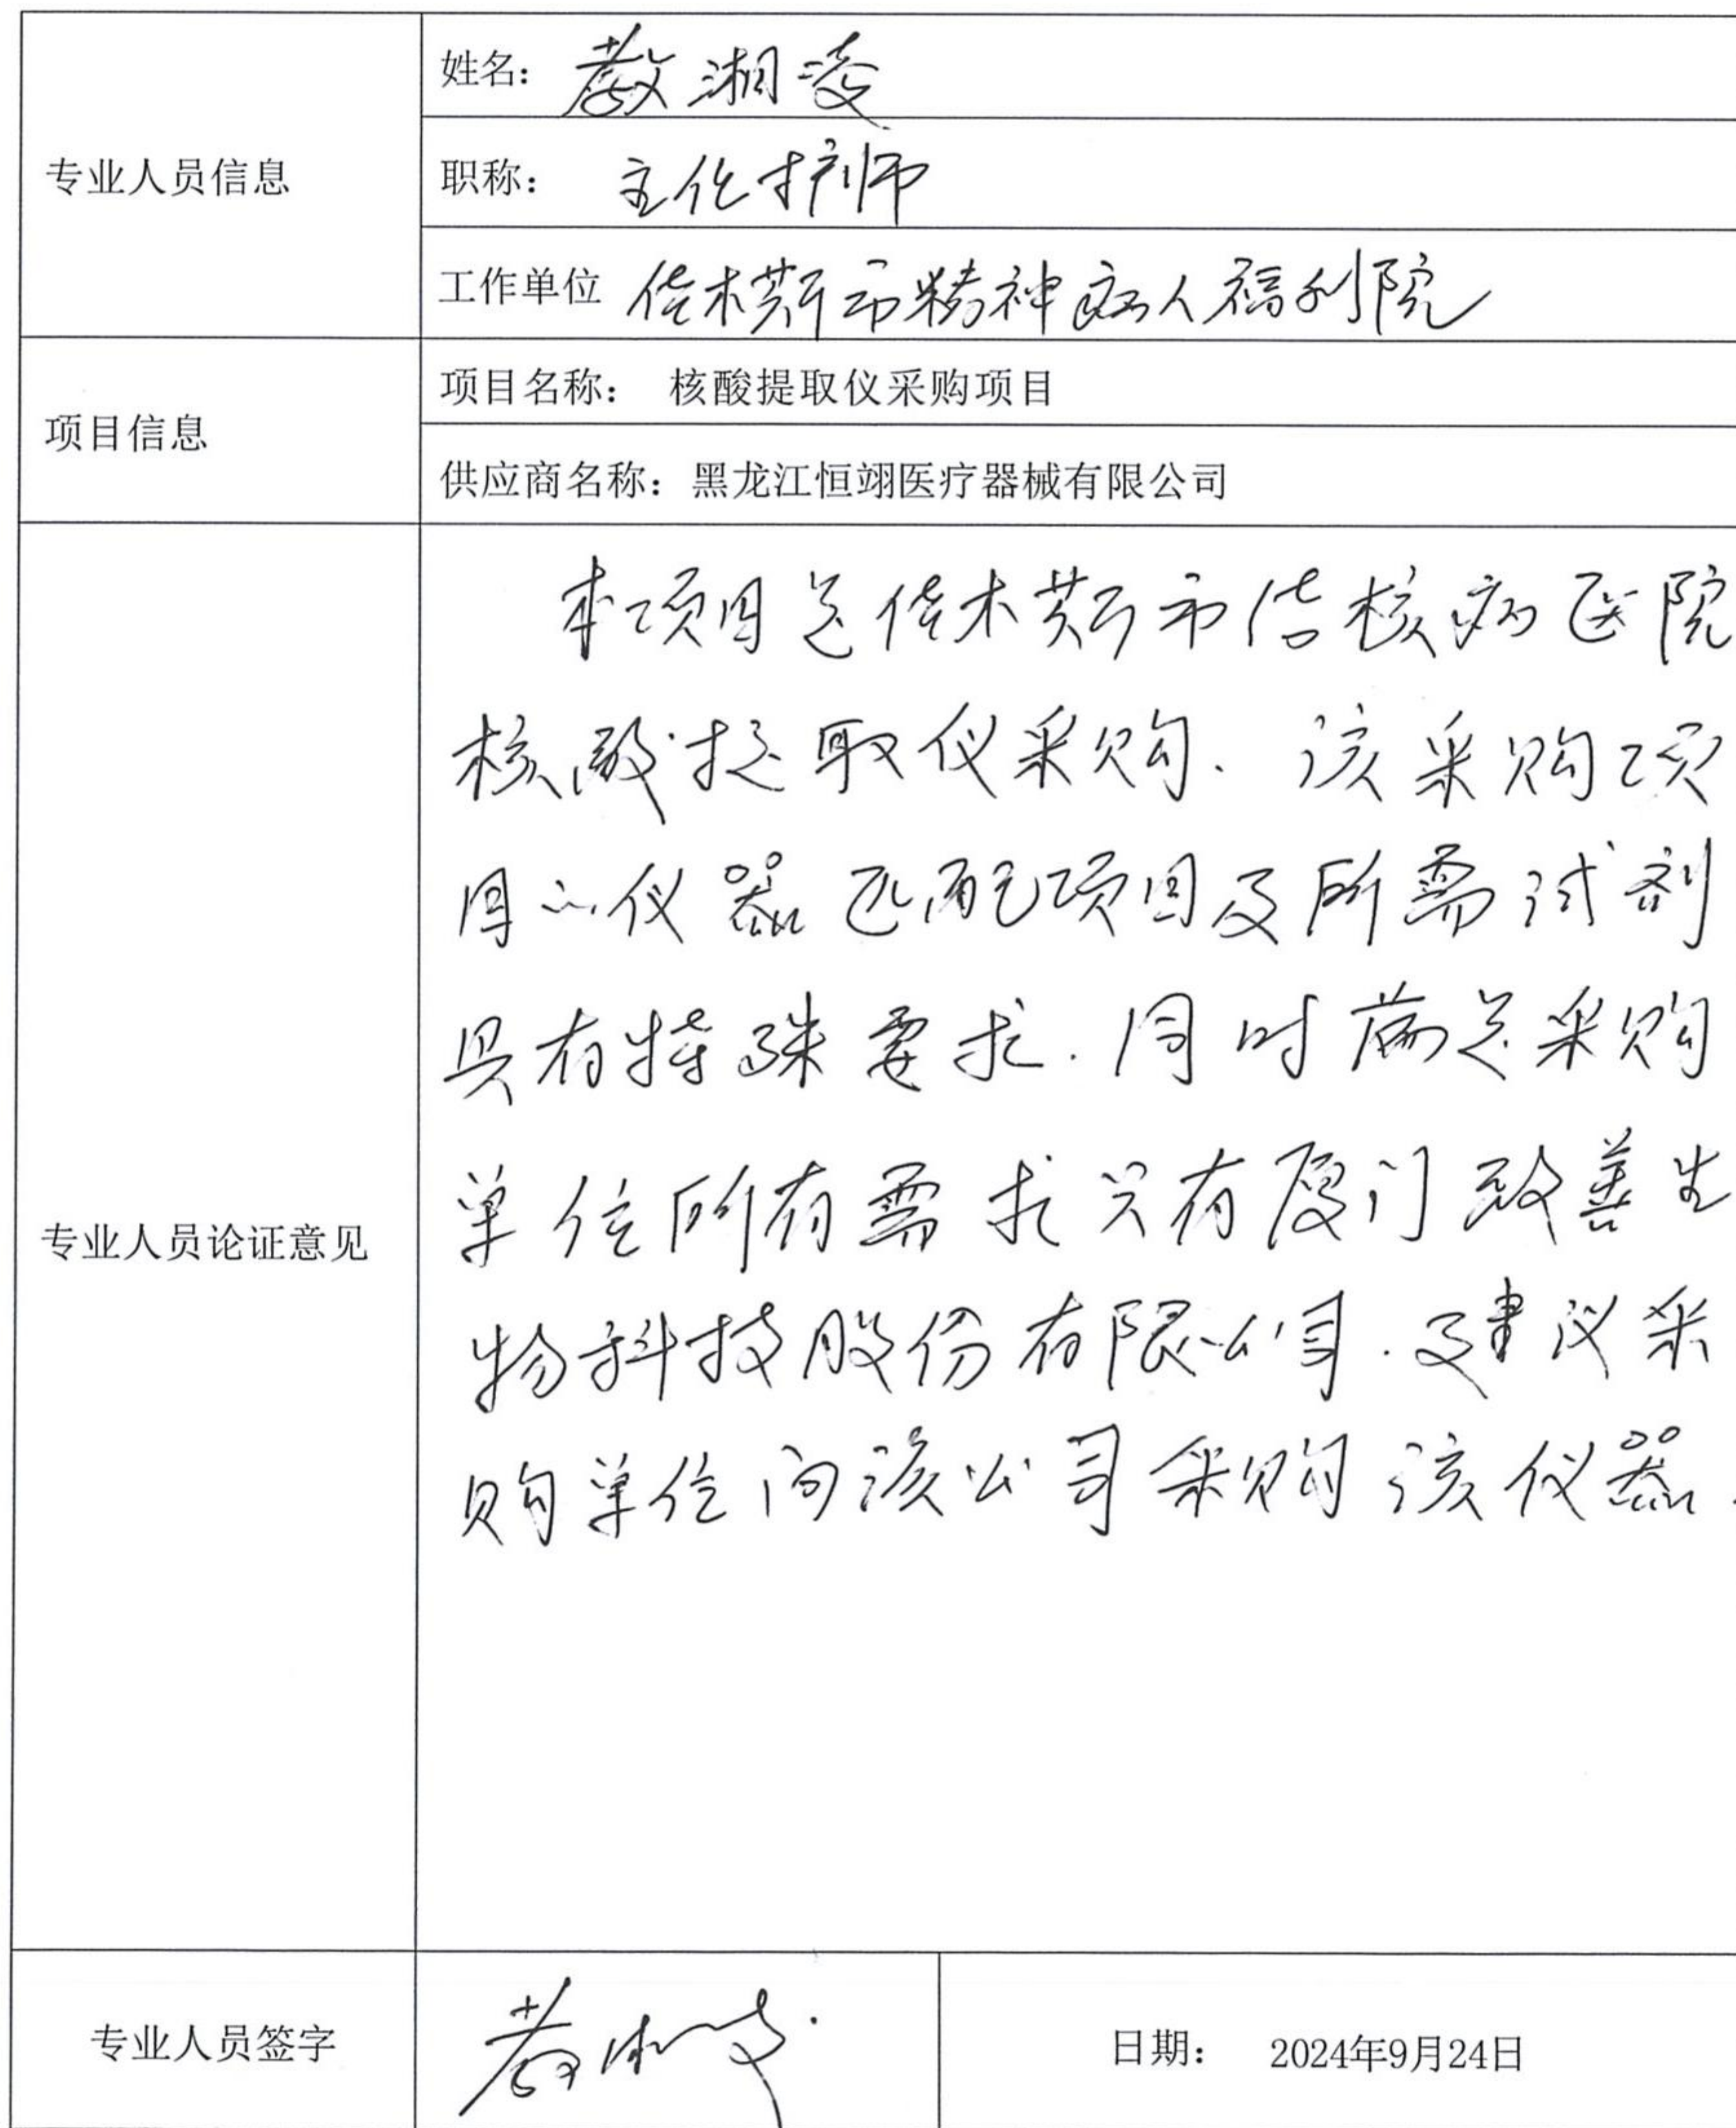 专业人员信息
姓名：教湘凌
职称：主任护师
工作单位 佳木斯市精神病人福利院
项目信息
项目名称： 核酸提取仪采购项目
供应商名称：黑龙江恒翊医疗器械有限公司
专业人员论证意见
本项目是佳木斯市结核病医院
核酸提取仪采购、该采购项
目的仪器匹配项目及所需试剂
具有特殊要求.同时满足采购
单位所有需求只有厦门致善生
物科技股份有限公司.建议采
购单位向该公司采购该仪器.
专业人员签字
日期： 2024年9月24日